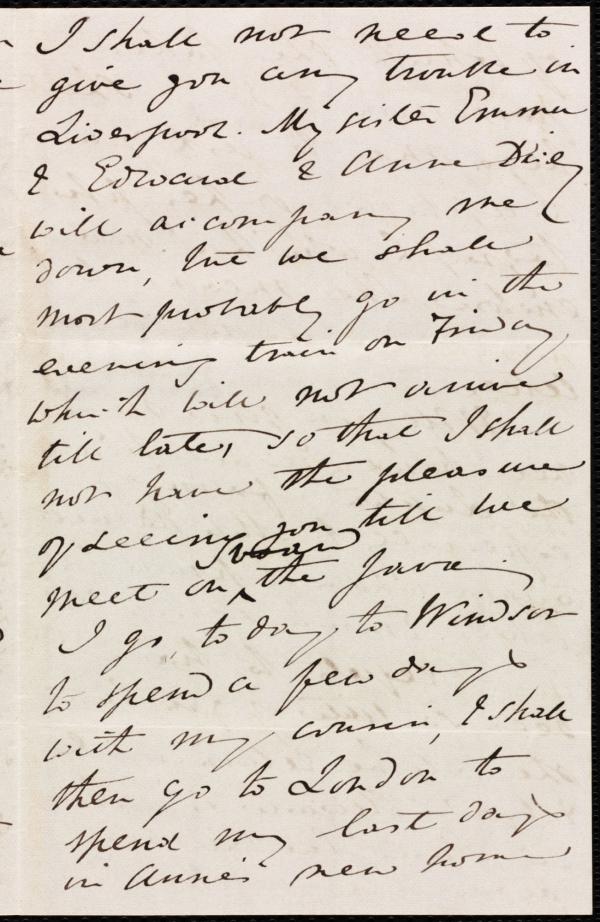 I shall not need to
give you any trouble in
Liverpool. My sister Emma
& Edward & Anne
will accompany me
down, but we shall
most probably go in the
evening train on Friday
which will not arrive
till late, so that I shall
not have the pleasure
of seeing you till we
board
meet on ‸ the Java.
I go to day to Windsor
to spend a few days
with my cousin, & shall
then go to London to
spend my last days
in Anne's new home